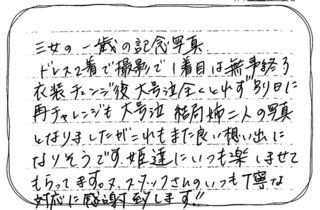 三女の一歳の記念写真
ドレス2着で撮影で1着目は無事終了
衣装チェンジ後大号泣全くとれず別日に
再チャレンジも大号泣 結局姉二人の写真
となりましたがこれもまた良い想い出に
なりそうです。姫達にいつも楽しませて
もらってます。又、スタッフさんのいつも丁寧な
対応に感謝致します。